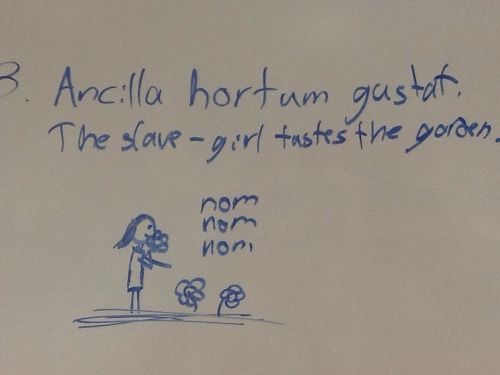 3. Ancilla hortum gustat.
The slave-girl tastes the garden.
nom
nom
nom